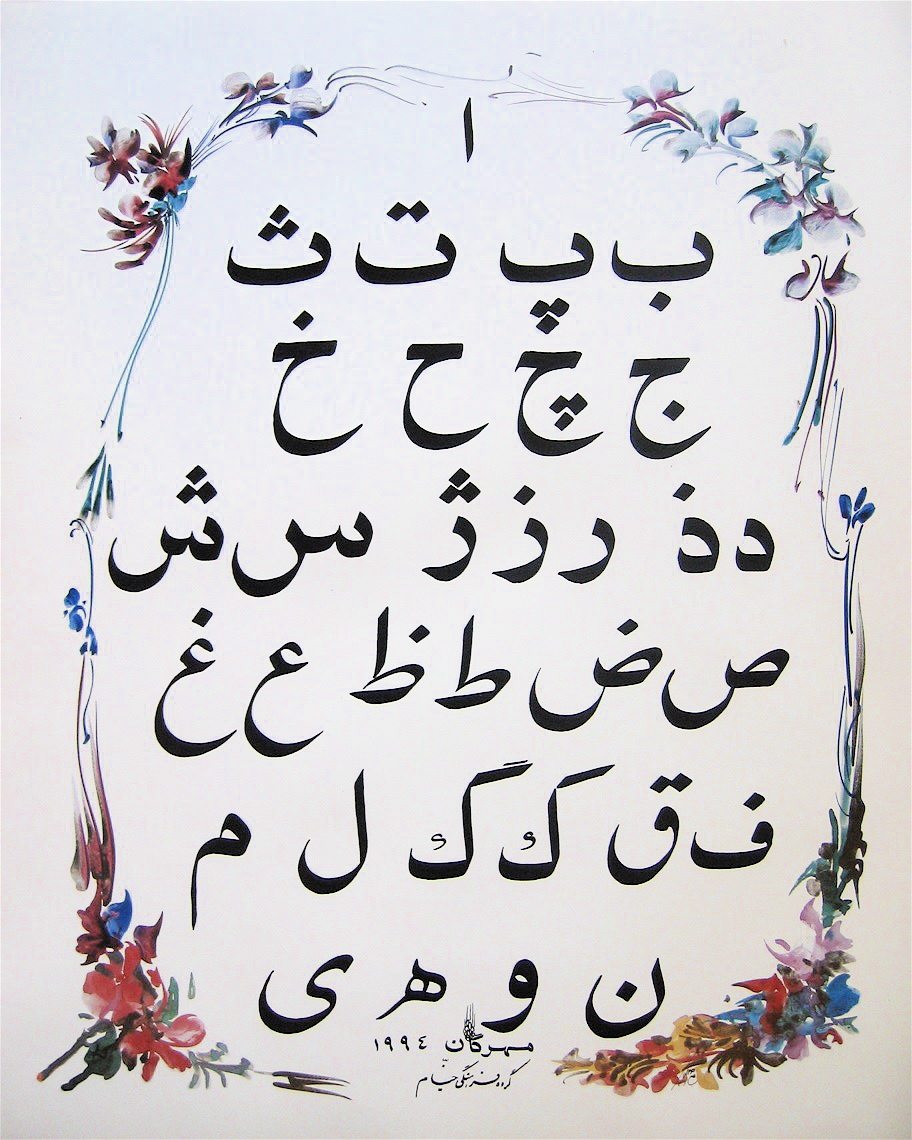 ا
ب پ ت ث
ج چ ح خ
د ذ ر ز ژ س ش
ص ض ط ظ ع غ
ف ق ک گ ل م
ن و ه ی
مهرگان ۱۹۹٤
گروه فرهنگی خیام